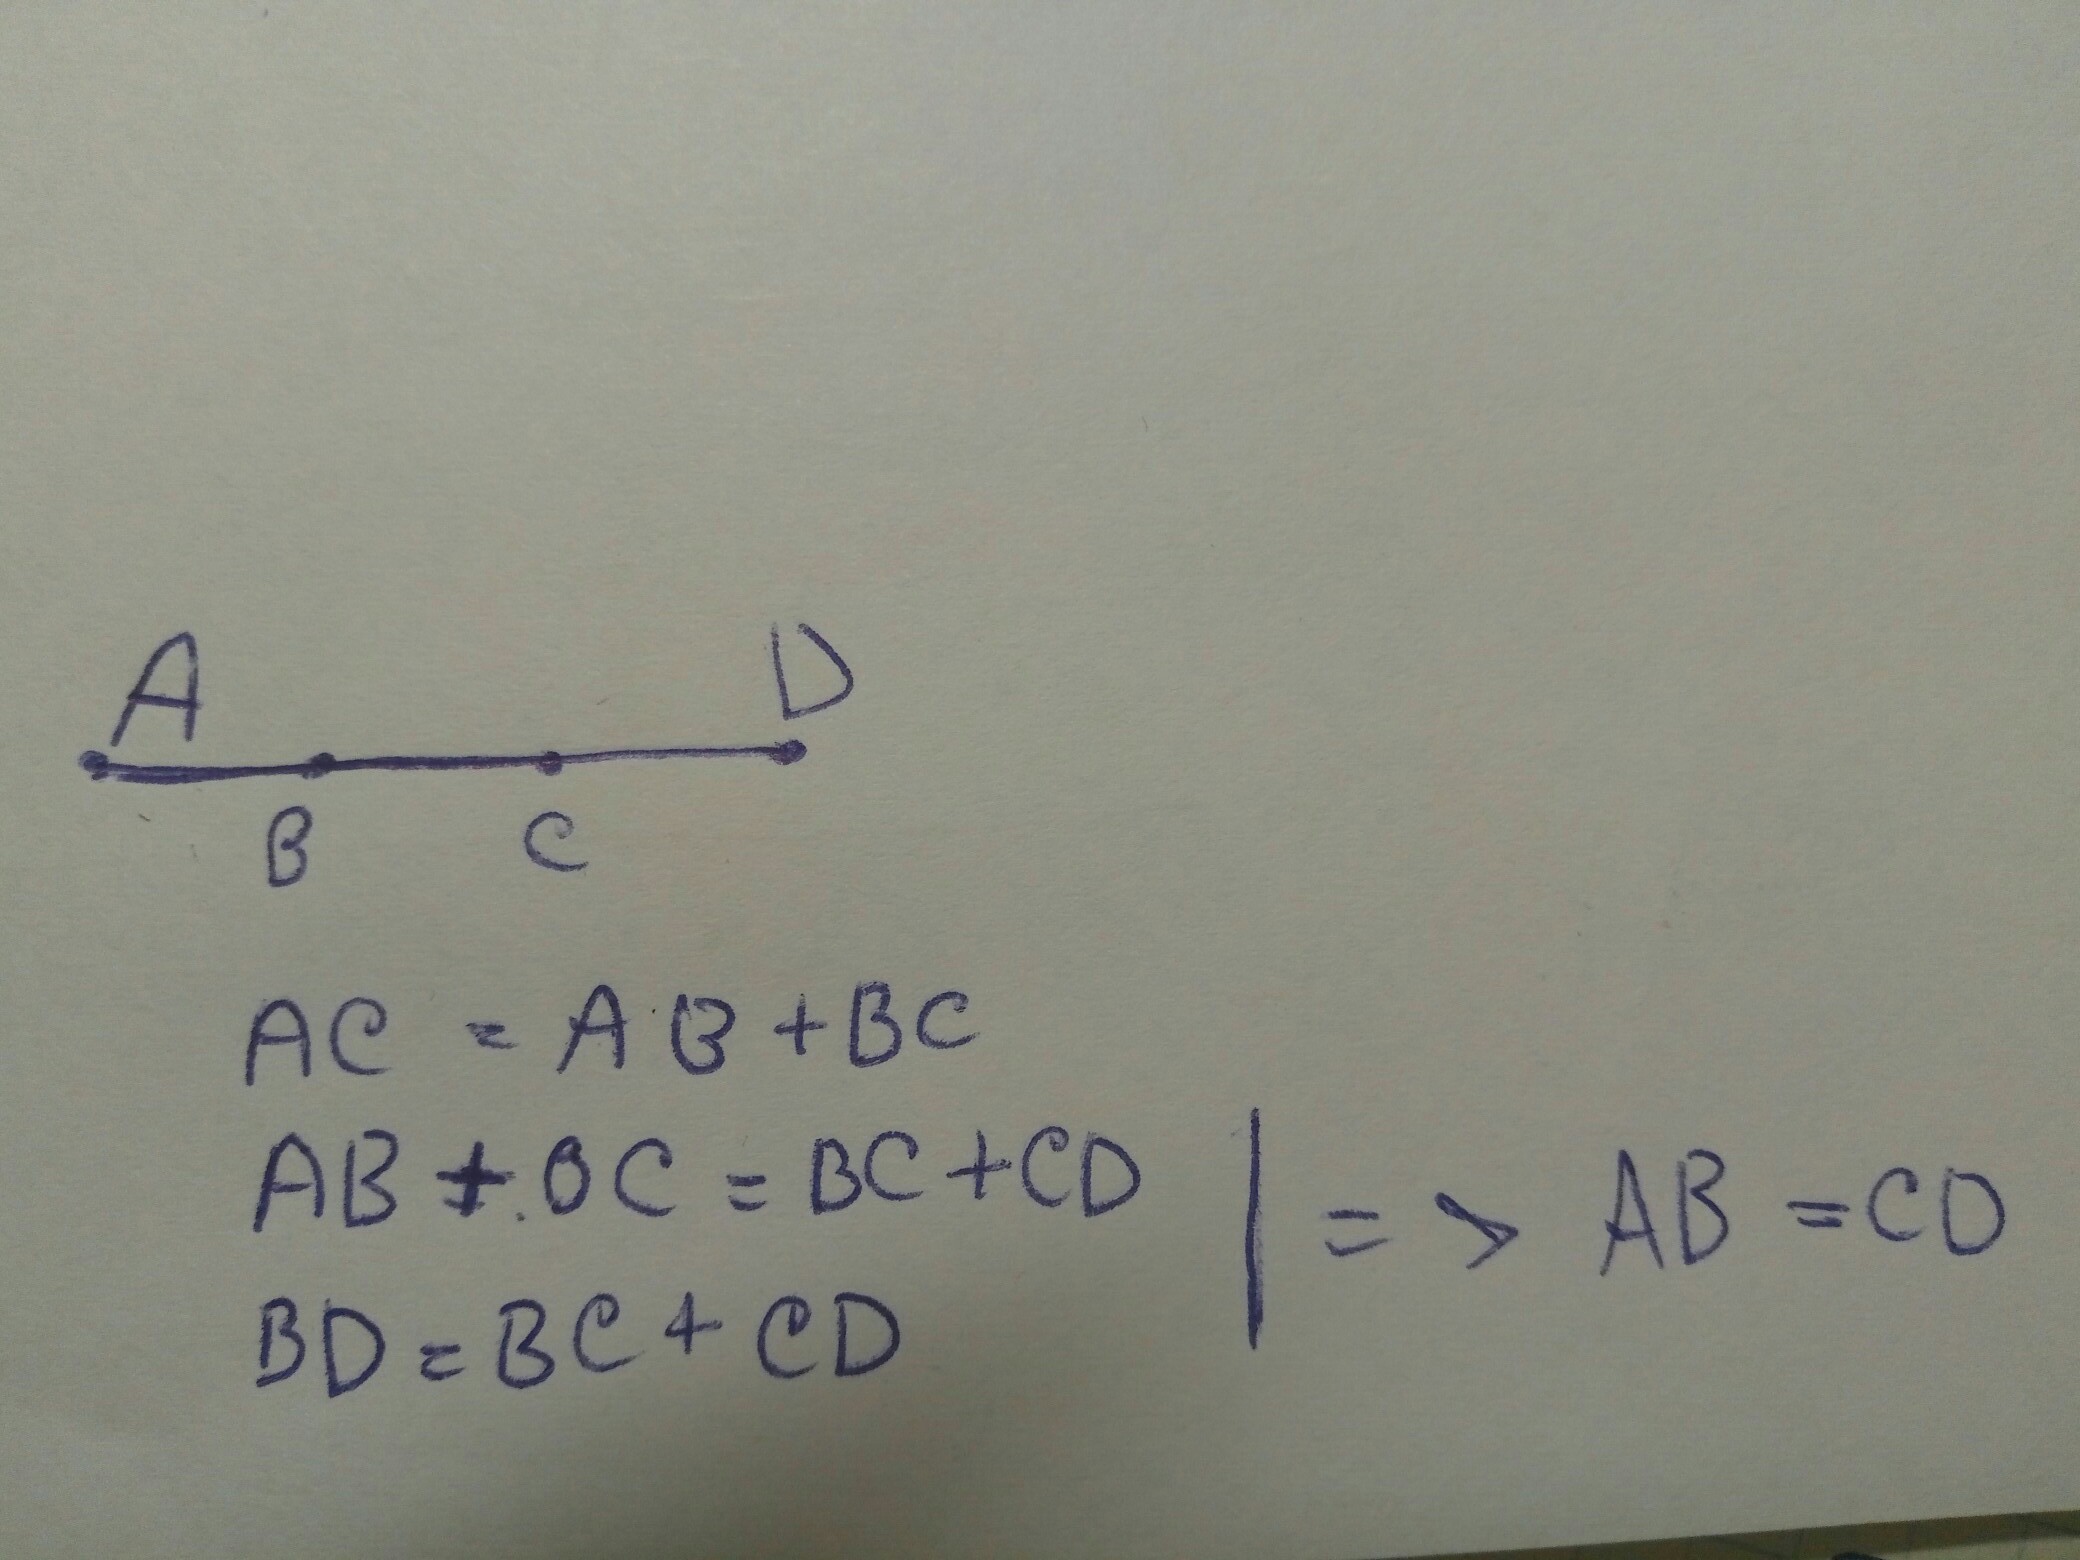 A D
B C
AC = AB + BC
AB + BC = BC + CD
=> AB = CD
BD = BC + CD